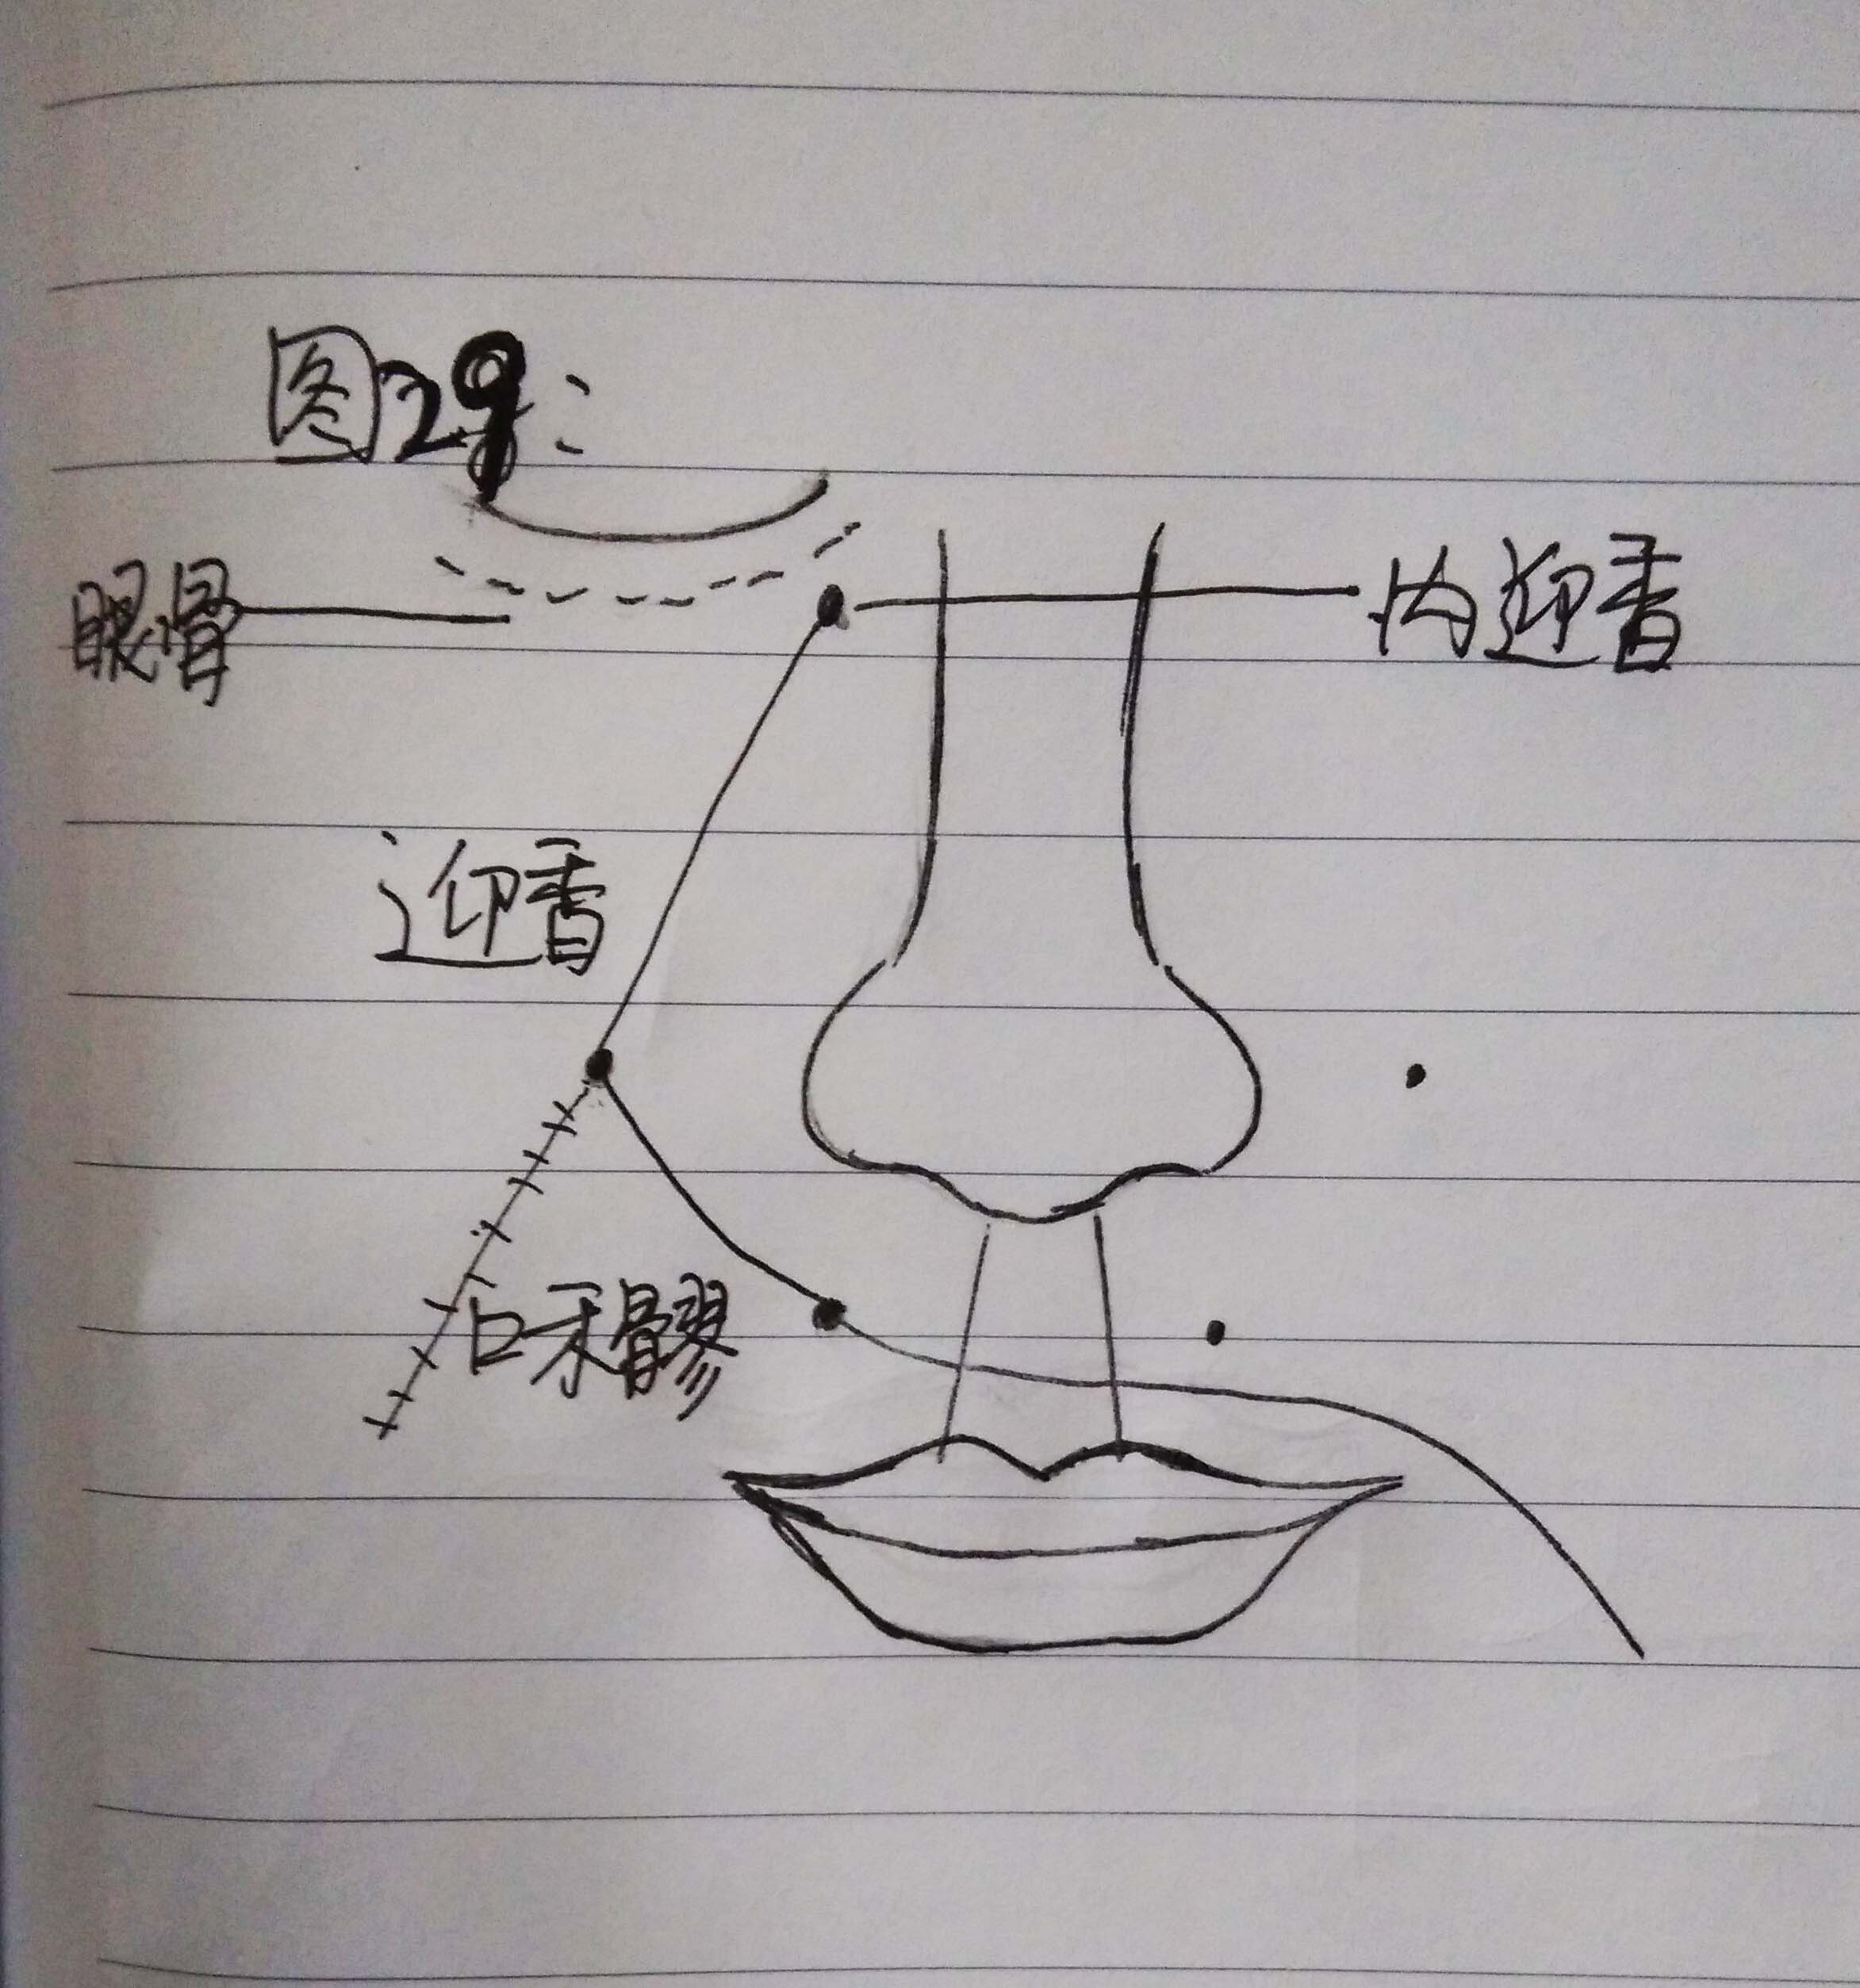 图29：
眼骨
内迎香
迎香
口禾髎